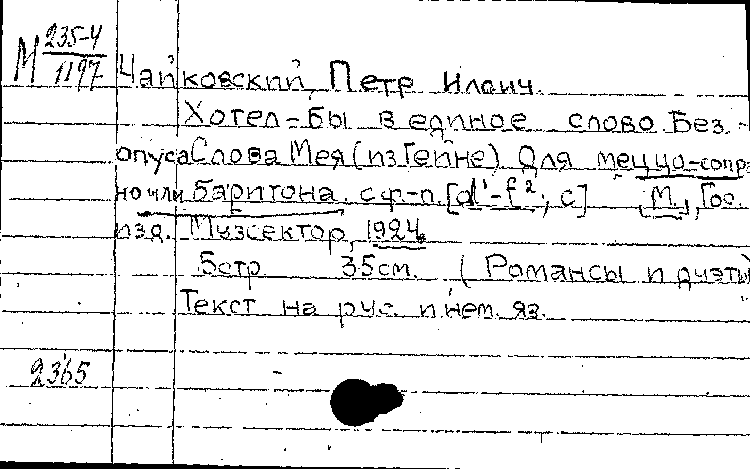 М 235-4
1197
Чайковский, Петр Илоич.
Хотел-бы в единое слово. Без
опуса Слова Мея (из Гейне) Для меццо-сопра
но или баритона. с ф-п. [d'-f²; c] [М.], Гос.
изд. Музсектор, 1924.
5стр 35см. (Романсы и дуэты)
Текст на рус. и нем. яз.
2365